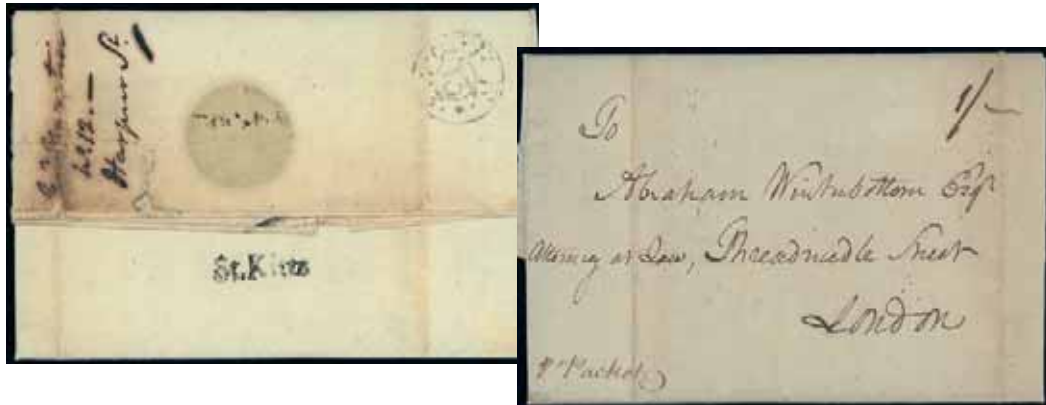 No. 12. —
Harpur St.
St. Kitts
1/-
To
Abraham Winterbottom Esqr
Attorney at Law, Threadneedle Street
London
pr Packet